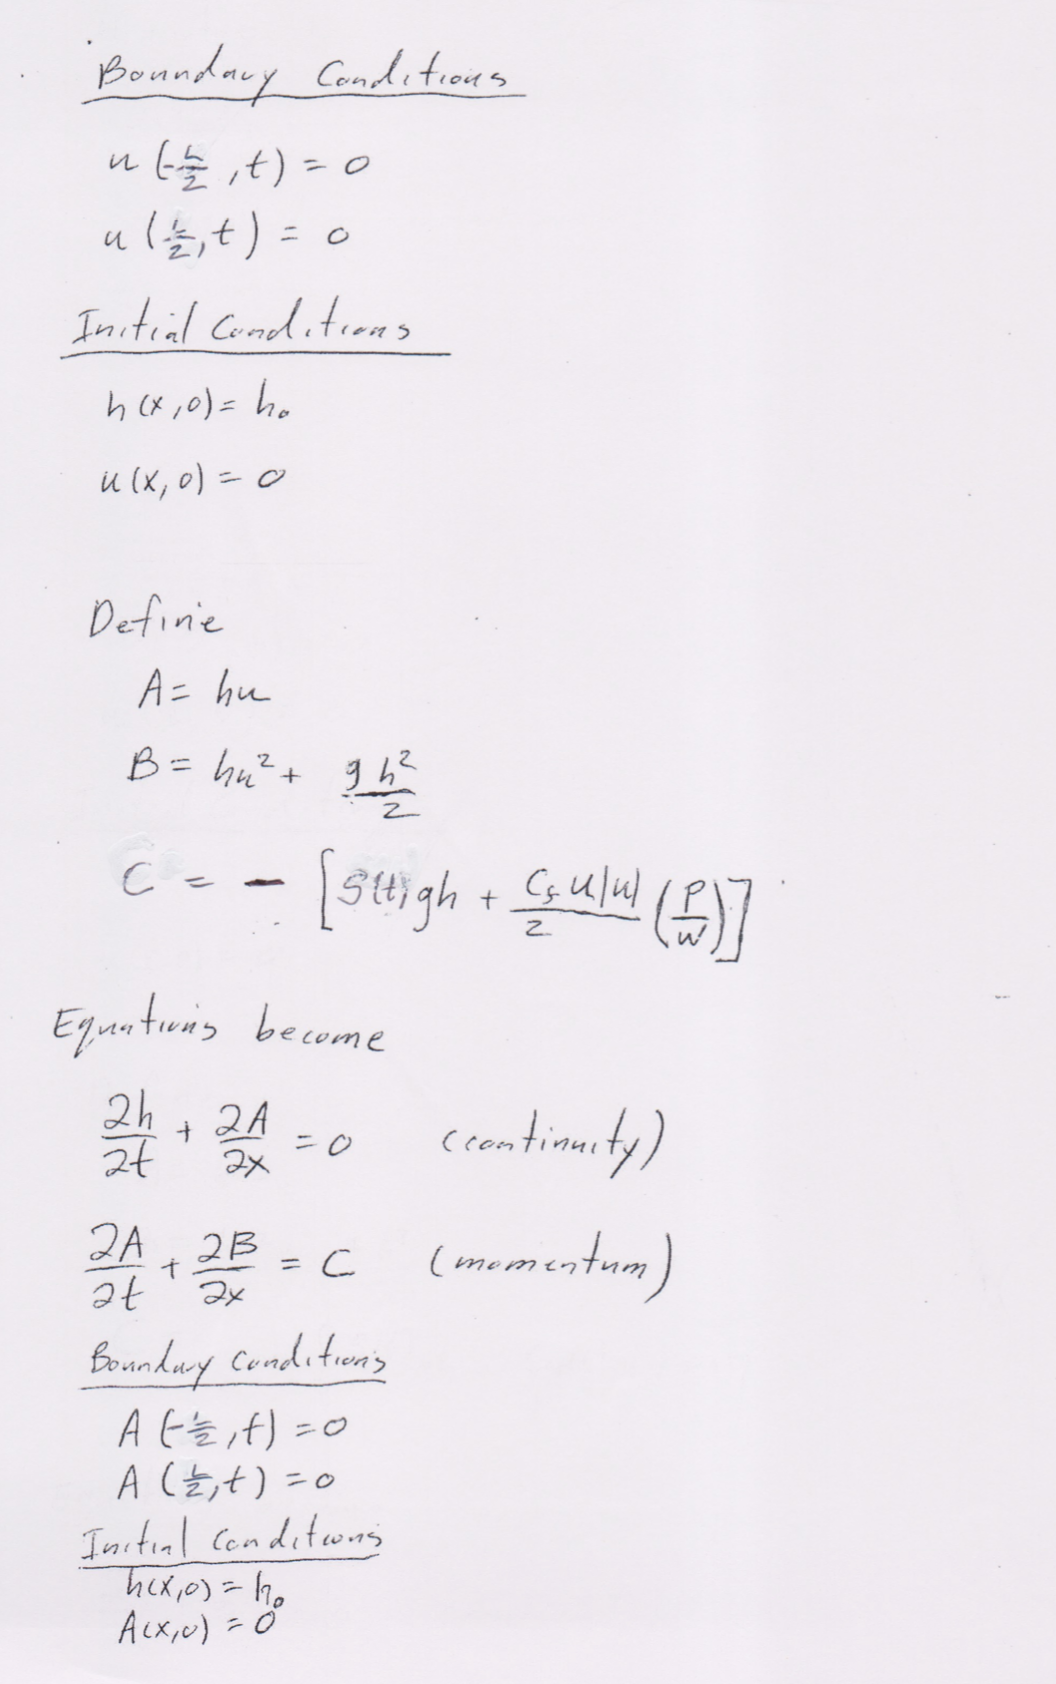 Boundary Conditions
u(-L/2, t) = 0
u(L/2, t) = 0
Initial Conditions
h(x, 0) = h₀
u(x, 0) = 0
Define
A = hu
B = hu² + gh²/2
C = - [S(t)gh + C_f u|u|/2 (P/W)]
Equations become
∂h/∂t + ∂A/∂x = 0 (continuity)
∂A/∂t + ∂B/∂x = C (momentum)
Boundary Conditions
A(-L/2, t) = 0
A(L/2, t) = 0
Initial Conditions
h(x, 0) = h₀
A(x, 0) = 0